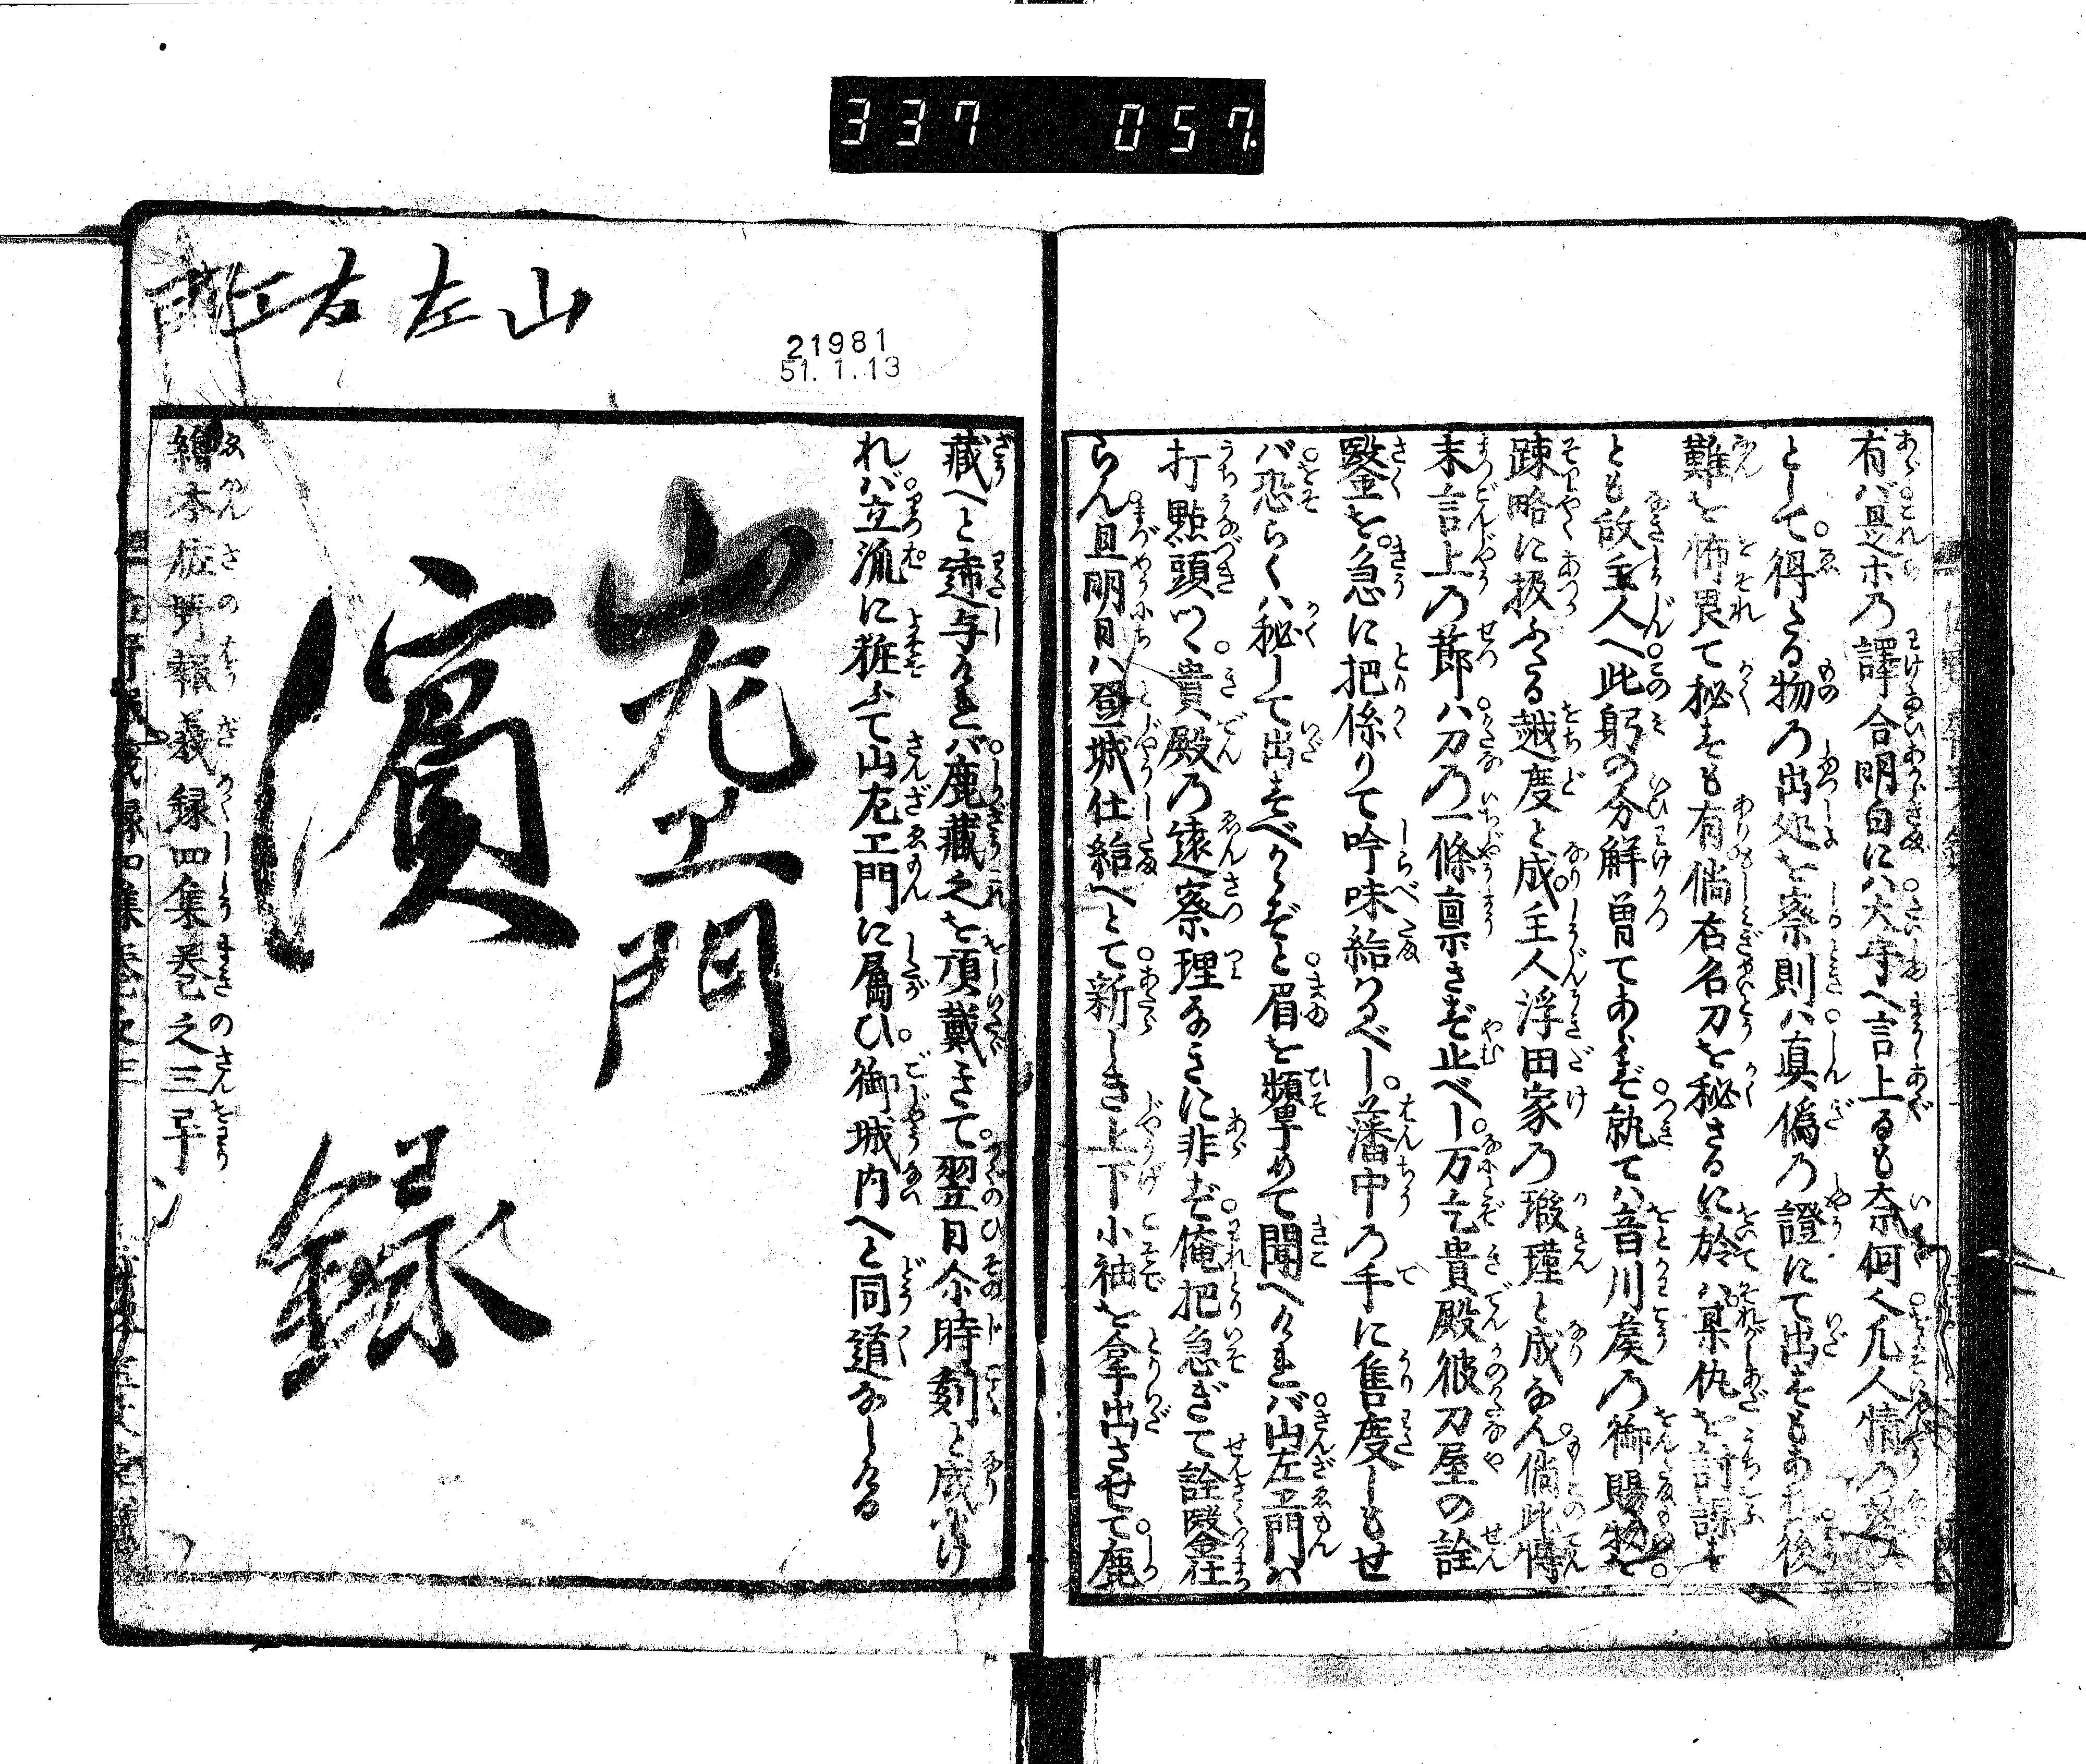 337 057.
有バ是ホ乃譯合明白にハ大守へ言上るも奈何人凡人情乃
として得たる物乃出処を察則ハ真偽乃證にて出すもあれ後
難を怖畏て秘すも有倘右名刀を秘さるに於ハ某仇を討謀を
とも故主人へ此躬の分解曽てあらず執てハ音川矦乃御賜物を
踈略に扱ふたる越度と成主人浮田家乃瑕瑾と成なん倘此傳
末言上乃莭ハ刀乃一條禀さず止べし万乞貴殿彼刀屋の詮
鑿を急に把係りて吟味給はるべし藩中乃手に售度しもせ
バ恐らくハ秘して出すべからずと眉を顰めて聞へけれバ山左エ門ハ
打點頭つゝ貴殿乃遠察理なきに非ず俺把急ぎて詮鑿在
らん且明日ハ登城仕給へとて新しき上下小袖を拿出させて鹿
山左右エ門
21981
51.1.13
藏へと逓与けれバ鹿藏之を頂戴きて翌日尒時刻と成ぬけ
れバ立流に粧ふて山左エ門に属ひ御城内へと同道なしける
山左エ門
濱
録
繪本佐野報義録四集巻之三畢